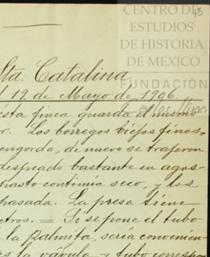 CENTRO DE
ESTUDIOS
DE HISTORIA
DE MEXICO
FUNDACIÓN
Sta Catalina
l 19, de Mayo de 1926.
esta finca guarda el mismo
Los borregos viejos finos,
engorda, de nuevo se trajeron
despuado bastante en agos
pasto continua seco, y los
pasada. La presa tiene
etros. = Si se pone el tubo
la Palmita, sería convenien
la válvula y tubo corresp